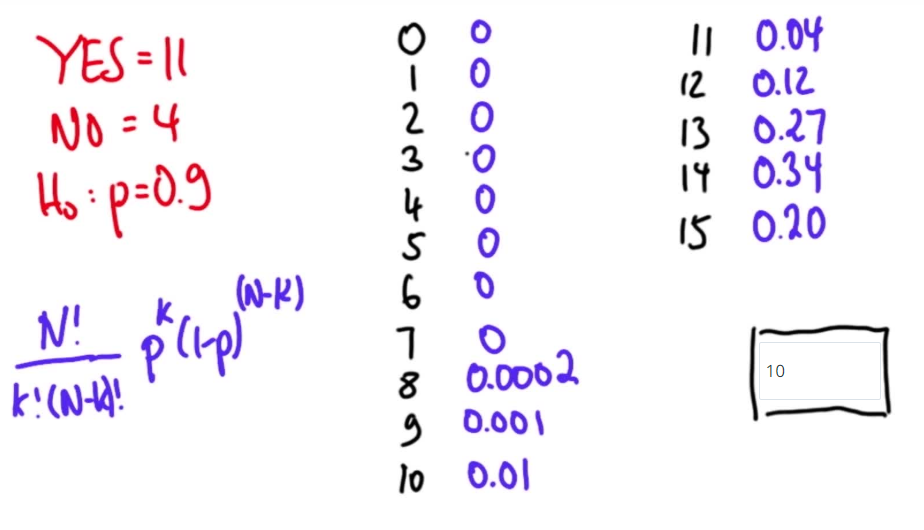 YES = 11
NO = 4
H₀ : p = 0.9
N!
k!(N-k)!
p^k (1-p)^(N-k)
0 0
1 0
2 0
3 0
4 0
5 0
6 0
7 0
8 0.0002
9 0.001
10 0.01
11 0.04
12 0.12
13 0.27
14 0.34
15 0.20
10